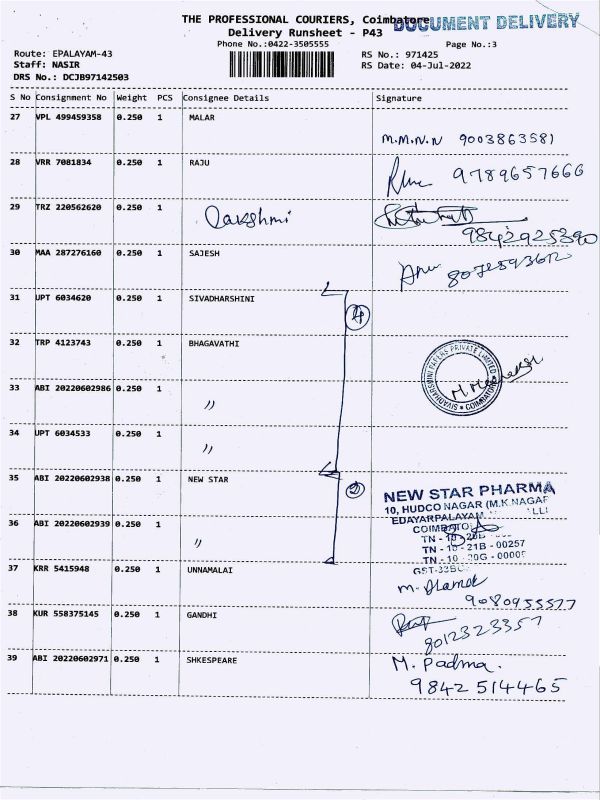 THE PROFESSIONAL COURIERS, Coimbatore
DOCUMENT DELIVERY
Delivery Runsheet - P43
Phone No.:0422-3505555 Page No.:3
Route: EPALAYAM-43 RS No.: 971425
Staff: NASIR RS Date: 04-Jul-2022
DRS No.: DCJB97142503
S No Consignment No Weight PCS Consignee Details Signature
27 VPL 499459358 0.250 1 MALAR
M.M.N.N 9003863581
28 VRR 7081834 0.250 1 RAJU
9789657666
29 TRZ 220562620 0.250 1 Lakshmi
9842925390
30 MAA 287276160 0.250 1 SAJESH
8072593612
31 UPT 6034620 0.250 1 SIVADHARSHINI
4
32 TRP 4123743 0.250 1 BHAGAVATHI
SIVADHARSHINI PAPERS PRIVATE LIMITED
* COIMBATORE *
33 ABI 20220602986 0.250 1 〃
34 UPT 6034533 0.250 1 〃
35 ABI 20220602938 0.250 1 NEW STAR
2
NEW STAR PHARMA
10, HUDCO NAGAR (M.K.NAGAR
EDAYARPALAYAM
36 ABI 20220602939 0.250 1 〃
TN - 10 - 20B -
TN - 10 - 21B - 00257
TN - 10 - 20G - 00005
37 KRR 5415948 0.250 1 UNNAMALAI
9080955577
38 KUR 558375145 0.250 1 GANDHI
8012323357
39 ABI 20220602971 0.250 1 SHKESPEARE
M. Padma.
9842514465